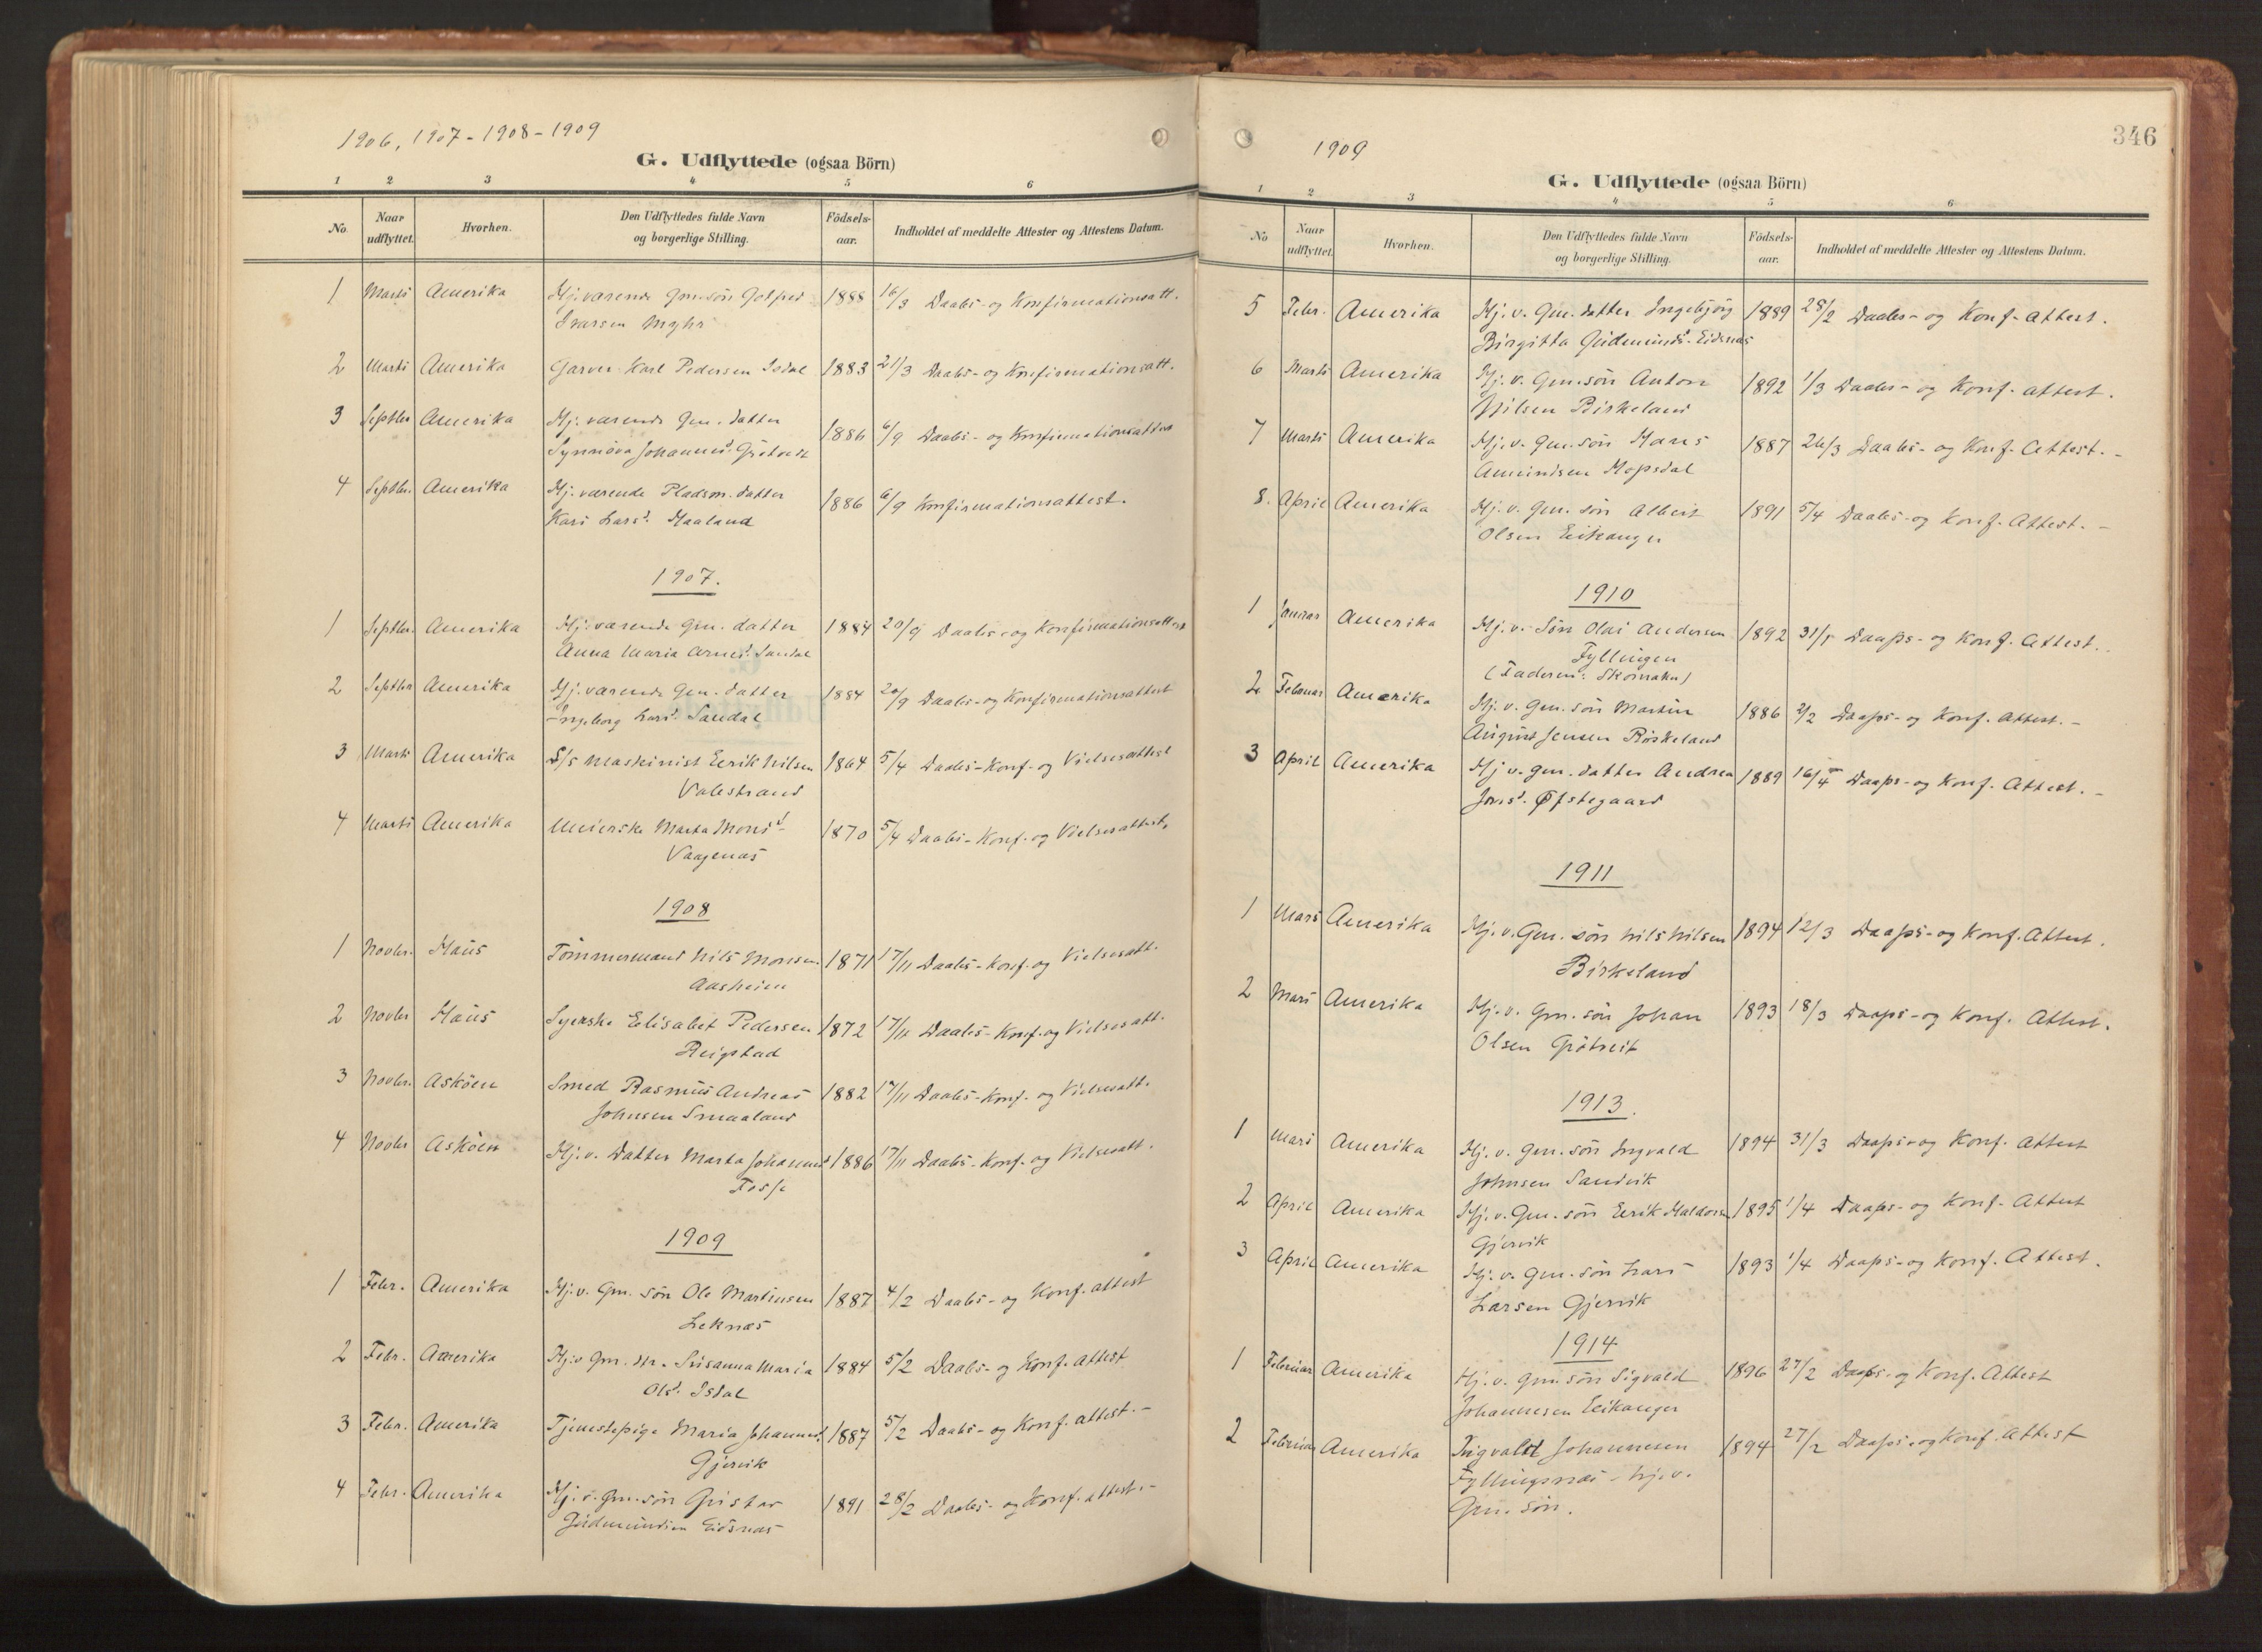 1906, 1907 - 1908 - 1909
G. Udflyttede (ogsaa Börn)
1 2 3 4 5 6
No. Naar udflyttet. Hvorhen. Den Udflyttedes fulde Navn og borgerlige Stilling. Födsels-aar. Indholdet af meddelte Attester og Attestens Datum.
1 Marts Amerika Hj. værende Gm. sön 1888 16/3 Daabs- og Konfirmationsatt.
Ivarsen Myhr
2 Marts Amerika Garver Karl Pedersen Isdal 1883 21/3 Daabs- og Konfirmationsatt.
3 Septbr Amerika Hj. værende Gm. datter 1886 6/9 Daabs- og Konfirmationsattest
Synnöva Johannesd.
4 Septbr. Amerika Hj. værende Pladsm. datter 1886 6/9 Konfirmationsattest.
Kari Larsd. Haaland
1907.
1 Septbr. Amerika Hj. værende Gm. datter 1884 20/9 Daabs- og Konfirmationsattest
Anna Maria Arnesd. Sandal
2 Septbr Amerika Hj. værende Gm. datter 1884 20/9 Daabs- og Konfirmationsattest
Ingeborg Larsd. Sandal
3 Marts Amerika S/s Maskinist Eerik Nilsen 1864 5/4 Daabs- Konf- og Vielsesattest
Valestrand
4 Marts Amerika Meierske Marta Monsd. 1870 5/4 Daabs- Konf- og Vielsesattest.
Vaagenæs
1908
1 Novbr. Haus Tömmermand Nils Monsen 1871 17/11 Daabs- Konf. og Vielsesatt.
Aasheim
2 Novbr Haus Syerske Elisabet Pedersen 1872 17/11 Daabs- Konf. og Vielsesatt.
Reigstad
3 Novbr. Asköen Smed Rasmus Andreas 1882 17/11 Daabs- Konf- og Vielsesatt.
Johnsen Smaaland
4 Novbr Asköen Hj. v. Datter Marta Johannesd 1886 17/11 Daabs- Konf. og Vielsesatt.
Fosse
1909
1 Febr. Amerika Hj. v. Gm. sön Ole Martinsen 1887 4/2 Daabs- og Konf. attest
Leknæs
2 Febr. Amerika Hj. v Gm. dtr. Susanna Maria 1884 5/2 Daabs- og Konf. attest
Olsd. Isdal
3 Febr. Amerika Tjenestepige Maria Johannesd. 1887 5/2 Daabs- og Konf. attest. -
Gjervik
4 Febr. Amerika Hj. v. Gm. sön Gustav 1891 28/2 Daabs- og Konf. attest. -
Gudmundsen Eidsnæs
346
1909
G. Udflyttede (ogsaa Börn)
1 2 3 4 5 6
No Naar udflyttet. Hvorhen. Den Udflyttedes fulde Navn og borgerlige Stilling. Födsels-aar. Indholdet af meddelte Attester og Attestens Datum.
5 Febr. Amerika Hj. v. Gm. datter Ingebjörg 1889 28/2 Daabs- og Konf- attest.
Birgitta Gudmundsd. Eidsnæs
6 Marts Amerika Hj. v. Gm. sön Anton 1892 1/3 Daabs- og Konf. attest.
Nilsen Birkeland
7 Marts Amerika Hj. v. Gm. sön Hans 1887 26/3 Daabs- og Konf. Attest. -
Amundsen Hopsdal
8. April Amerika Hj. v. Gm. sön Albert 1891 5/4 Daabs- og Konf. Attest. -
Olsen Eikanger
1910
1 Januar Amerika Hj. v. Sön Olai Andersen 1892 31/1 Daaps- og Konf. Attest.
Fyllingen
(Faderen: Skomaker)
2 Februar Amerika Hj. v. Gm. sön Martin 1886 2/2 Daaps- og Konf. Attest. -
August Jensen Röskeland
3 April Amerika Hj v. Gm. datter Andrea 1889 16/4 Daaps- og Konf. Attest. -
Jensd. Øfstegaard
1911
1 Mars Amerika Hj. v. Gm. sön Nils Nilsen 1894 12/3 Daaps- og Konf. Attest.
Birkeland
2 Mars Amerika Hj. v. Gm. sön Johan 1893 18/3 Daaps- og Konf. Attest.
Olsen Götveit
1913.
1 Mars Amerika Hj. v. Gm. sön Ingvald 1894 31/3 Daaps- og Konf. Attest
Johnsen Sandvik
2 April Amerika Hj. v. Gm. sön Eerik Haldorsen 1895 1/4 Daaps- og Konf- Attest
Gjervik
3 April Amerika Hj. v. Gm. sön Lars 1893 1/4 Daaps- og Konf. Attest.
Larsen Gjervik
1914
1 Februar Amerika Hj. v. Gm. sön Sigvald 1896 27/2 Daabs- og Konf. Attest
Johannesen Eeikanger
2 Februar Amerika Ingvald Johannesen 1894 27/2 Daaps- og Konf. Attest
Fyllingsnæs - hj. v.
Gm. sön.